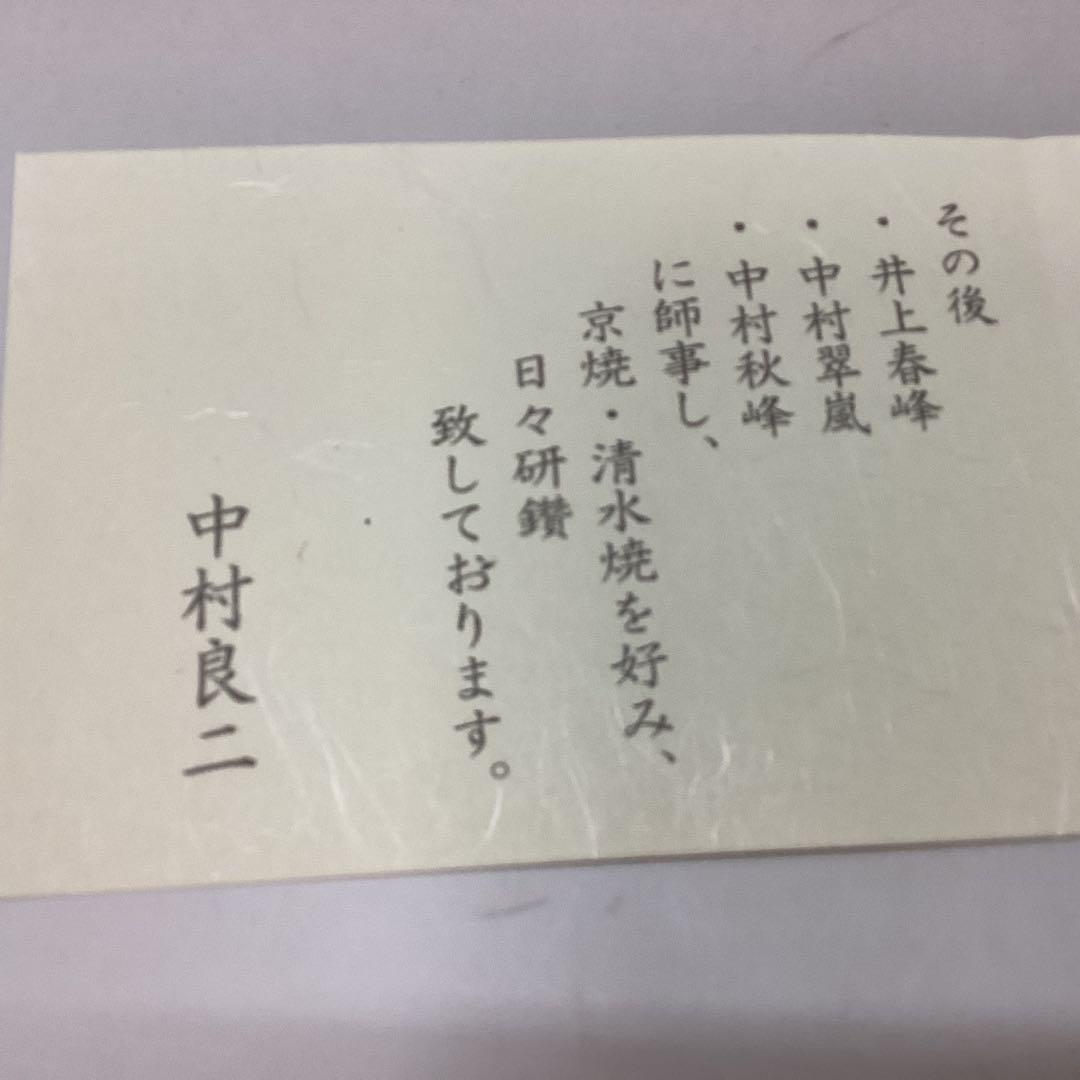 その後
・井上春峰
・中村翠嵐
・中村秋峰
に師事し、
京焼・清水焼を好み、
日々研鑽
致しております。
中村良二